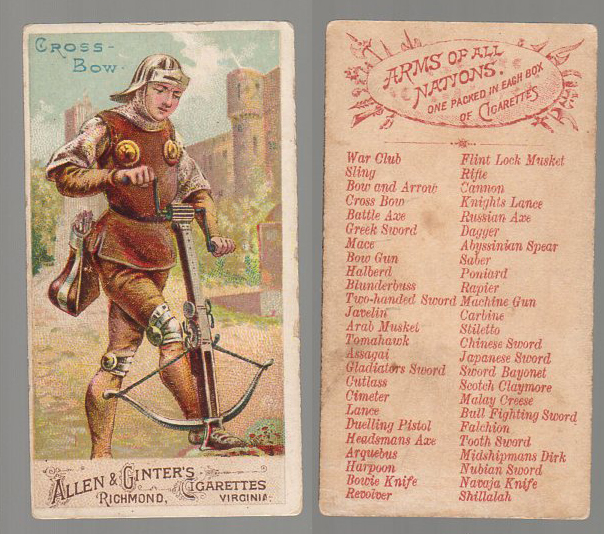 CROSS-
BOW.
ALLEN & GINTER'S CIGARETTES
RICHMOND, VIRGINIA.
ARMS OF ALL
NATIONS.
ONE PACKED IN EACH BOX
OF CIGARETTES
War Club
Sling
Bow and Arrow
Cross Bow
Battle Axe
Greek Sword
Mace
Bow Gun
Halberd
Blunderbuss
Two-handed Sword
Javelin
Arab Musket
Tomahawk
Assagai
Gladiators Sword
Cutlass
Cimeter
Lance
Duelling Pistol
Headsmans Axe
Arquebus
Harpoon
Bowie Knife
Revolver
Flint Lock Musket
Rifle
Cannon
Knights Lance
Russian Axe
Dagger
Abyssinian Spear
Saber
Poniard
Rapier
Machine Gun
Carbine
Stiletto
Chinese Sword
Japanese Sword
Sword Bayonet
Scotch Claymore
Malay Creese
Bull Fighting Sword
Falchion
Tooth Sword
Midshipmans Dirk
Nubian Sword
Navaja Knife
Shillalah